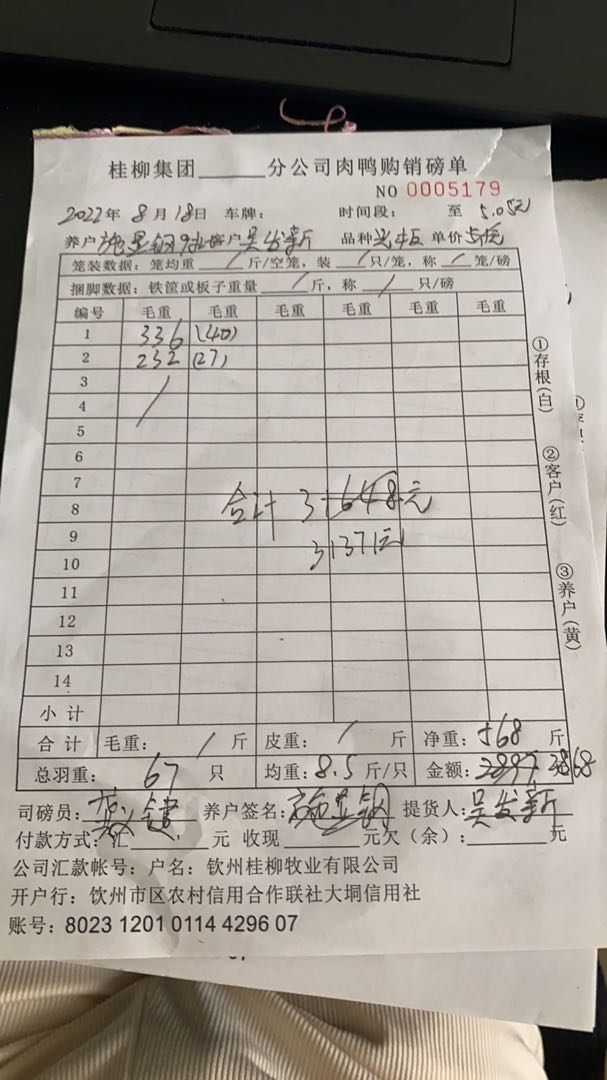 桂柳集团______分公司肉鸭购销磅单
NO 0005179
2022年 8月18日 车牌： 时间段： 至 5.05元
养户 客户 吴发新 品种 光板 单价
笼装数据：笼均重 / 斤/空笼，装 / 只/笼，称 / 笼/磅
捆脚数据：铁筐或板子重量 / 斤，称 / 只/磅
编号 毛重 毛重 毛重 毛重 毛重 毛重
1 336 (40)
2 232 (27)
3 /
4
5
6
7
8 合计 31648元
9 31371元
10
11
12
13
14
小计
合计 毛重： / 斤 皮重： / 斤 净重：568 斤
总羽重： 67 只 均重：8.5斤/只 金额：2897 2868
司磅员： 养户签名： 提货人：吴发新
付款方式：汇______元 收现______元欠（余）：______元
公司汇款帐号：户名：钦州桂柳牧业有限公司
开户行：饮州市区农村信用合作联社大垌信用社
账号：8023 1201 0114 4296 07
①存根(白)
②客户(红)
③养户(黄)